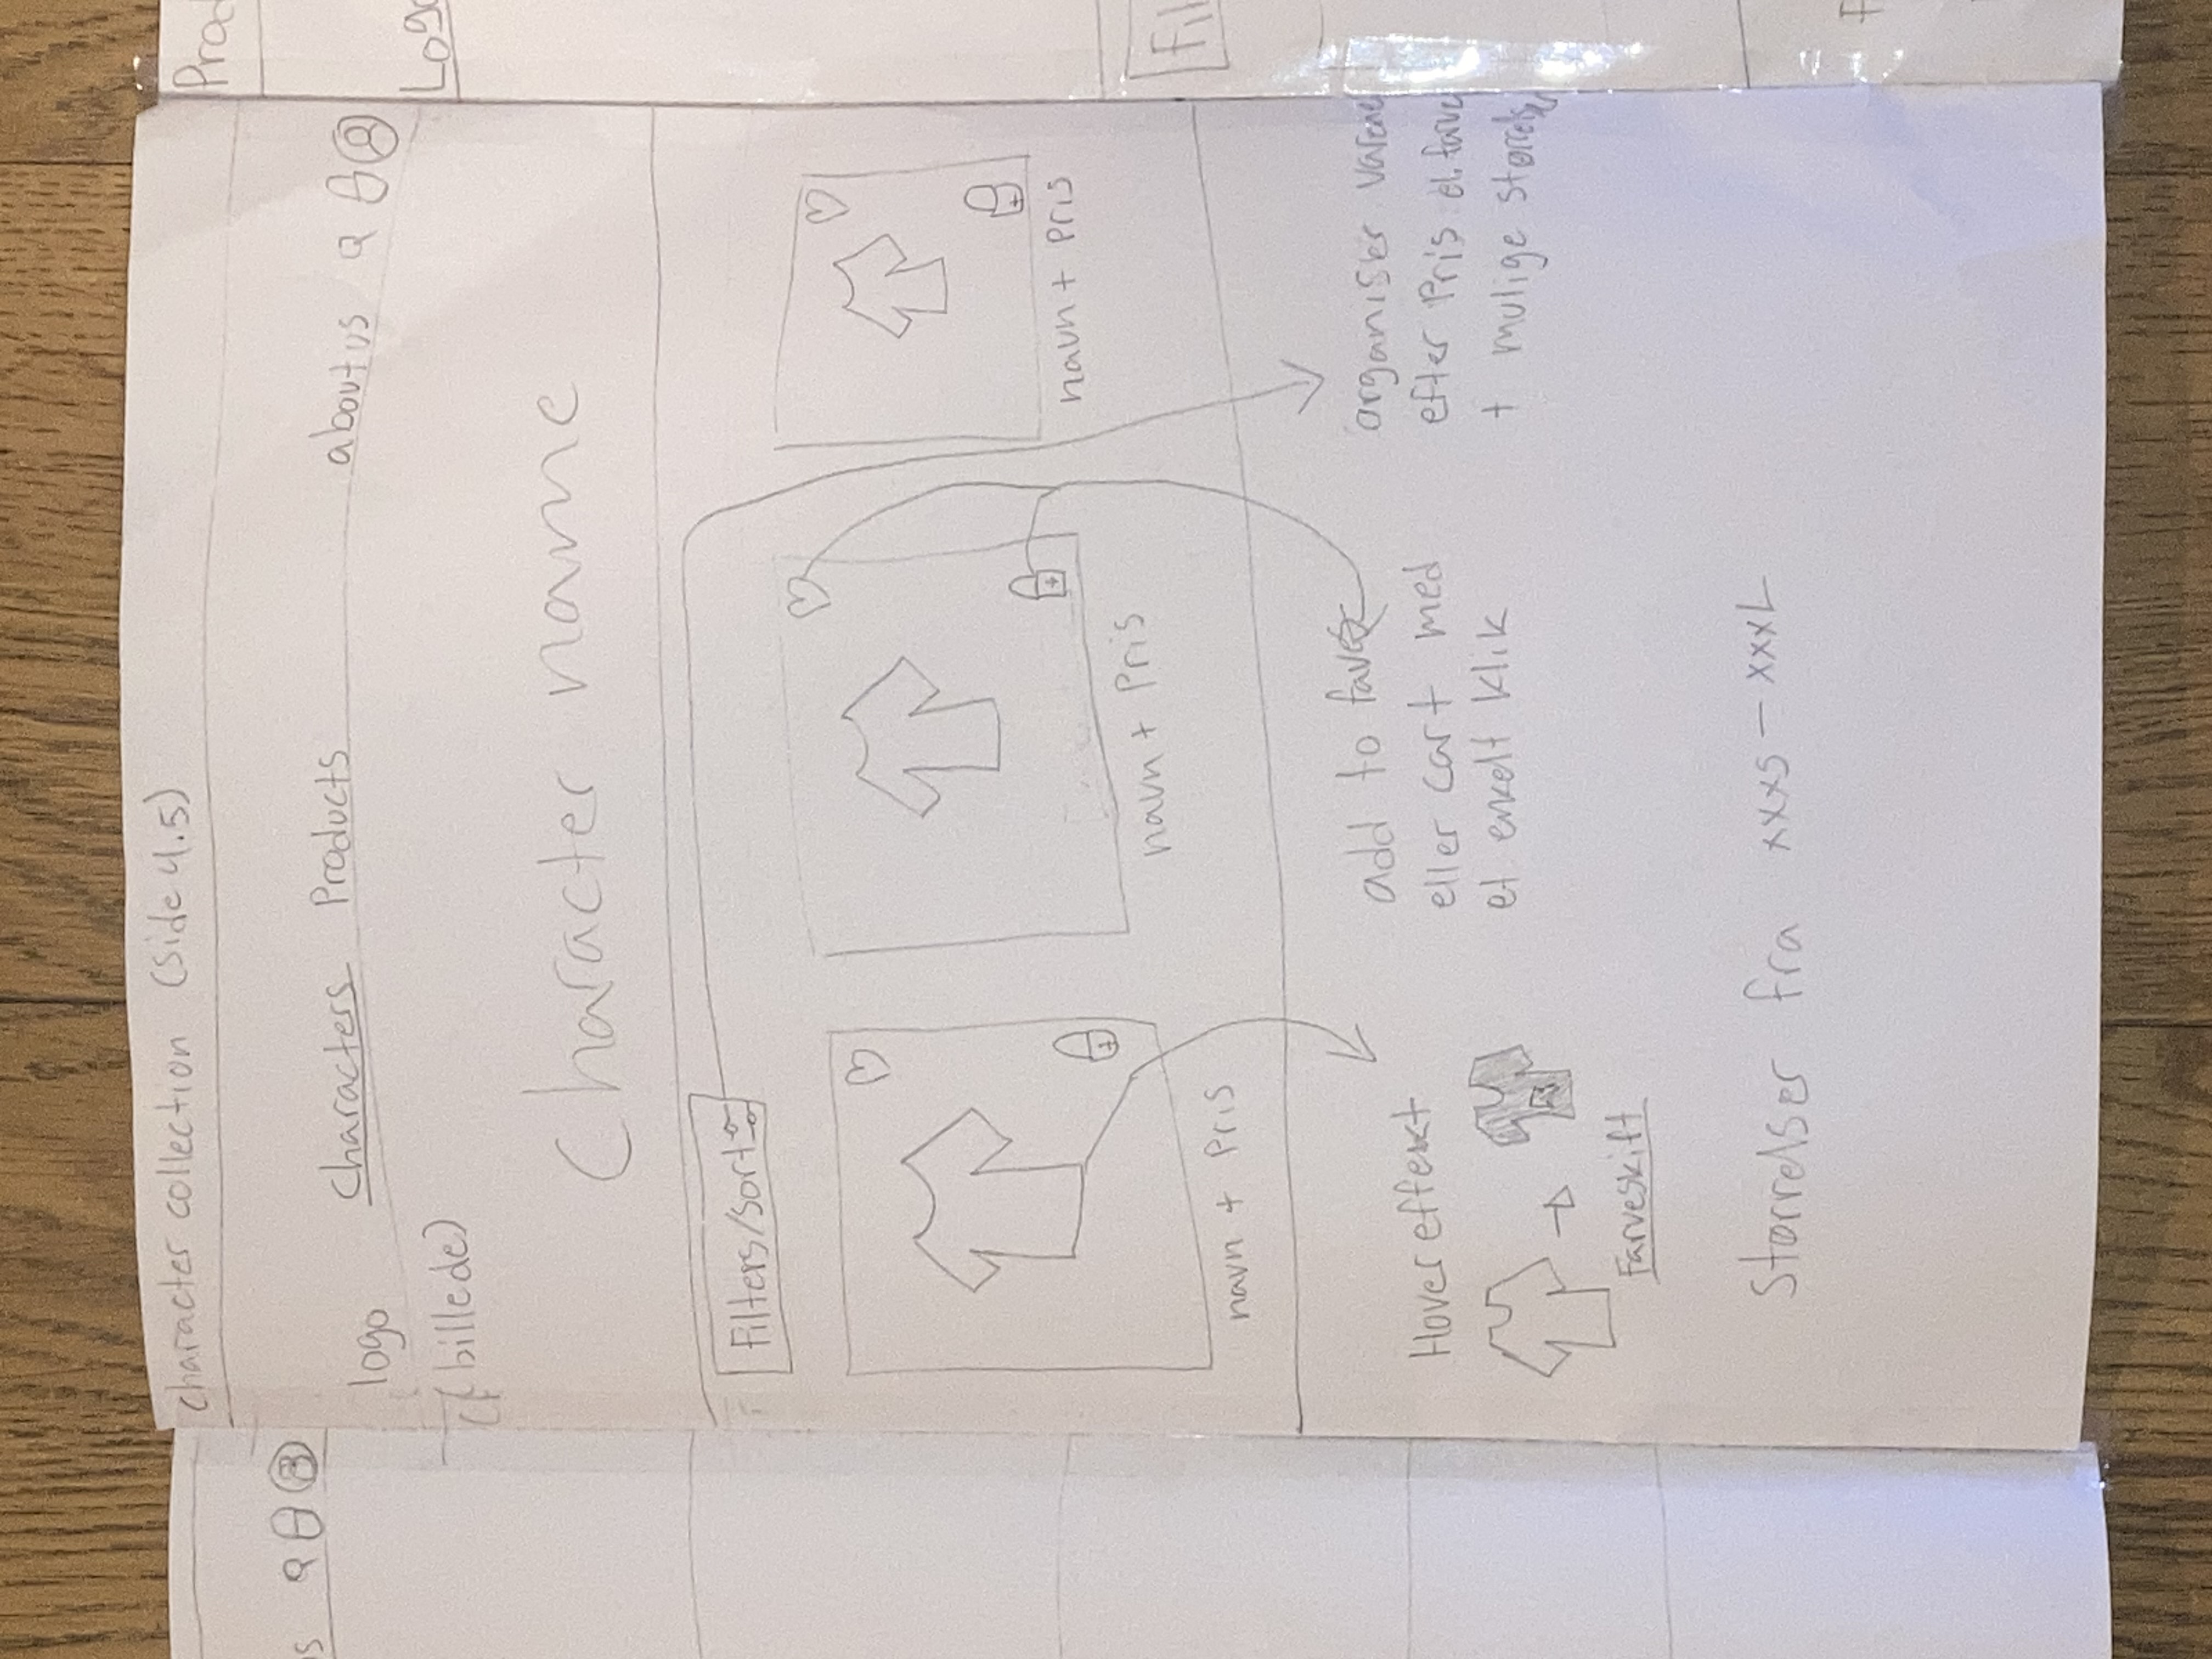 character collection (Side 4.5)
logo Characters Products about us
(billede)
Character name
Filters/Sort
navn + Pris
navn + Pris
navn + Pris
Hover effekt
Farveskift
add to favs
eller cart med
et enkelt klik
organiser varene
efter Pris el. farve
+ mulige størrelser
Størrelser fra xxxs – xxxL
Prod
Logo
Fil